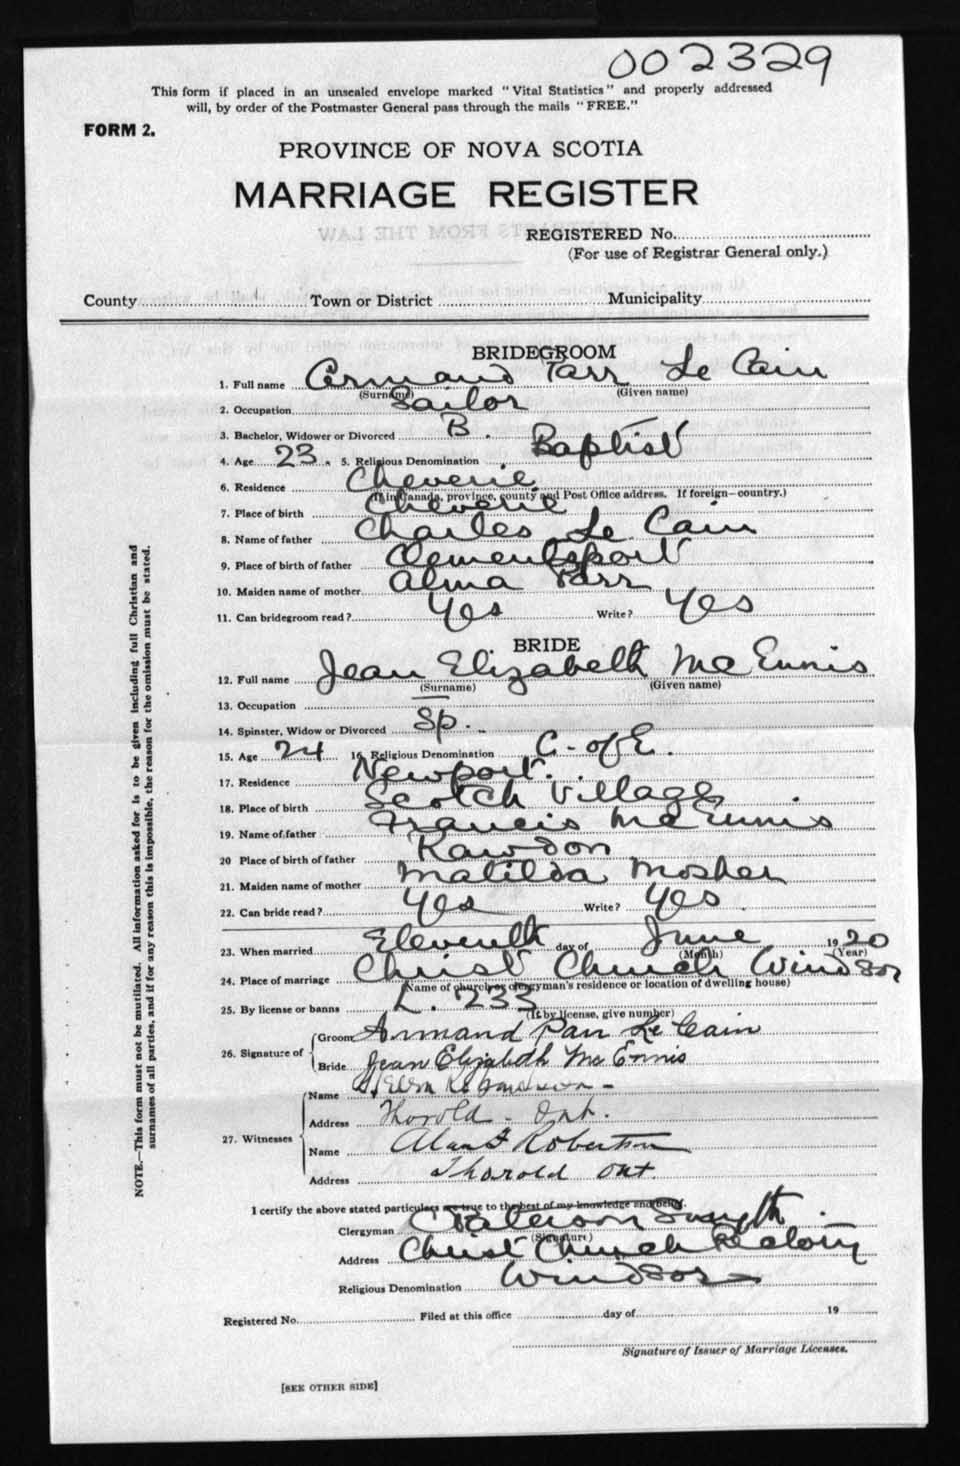 002329
This form if placed in an unsealed envelope marked "Vital Statistics" and properly addressed
will, by order of the Postmaster General pass through the mails "FREE."
FORM 2.
PROVINCE OF NOVA SCOTIA
MARRIAGE REGISTER
EXTRACTS FROM THE LAW
REGISTERED No.
(For use of Registrar General only.)
County Town or District Municipality
BRIDEGROOM
1. Full name Armand Parr Le Cain
(Surname) (Given name)
2. Occupation Sailor
3. Bachelor, Widower or Divorced B.
4. Age 23. 5. Religious Denomination Baptist
6. Residence Cheverie
(If in Canada, province, county and Post Office address. If foreign—country.)
7. Place of birth Cheverie
8. Name of father Charles Le Cain
9. Place of birth of father Clementsport
10. Maiden name of mother Alma Parr
11. Can bridegroom read? Yes Write? Yes
BRIDE
12. Full name Jean Elizabeth McEnnis
(Surname) (Given name)
13. Occupation —
14. Spinster, Widow or Divorced Sp.
15. Age 24 16. Religious Denomination C. of E.
17. Residence Newport.
18. Place of birth Scotch Village
19. Name of father Francis McEnnis
20 Place of birth of father Rawdon
21. Maiden name of mother Matilda Mosher
22. Can bride read? Yes Write? Yes
23. When married Eleventh day of June 1920
(Month) (Year)
24. Place of marriage Christ Church Windsor
(Name of church or clergyman's residence or location of dwelling house)
25. By license or banns L. 233
(If by license, give number)
26. Signature of Groom Armand Parr Le Cain
Bride Jean Elizabeth McEnnis
27. Witnesses Name
Address Thorold - Ont.
Name Robertson
Address Thorold Ont.
I certify the above stated particulars are true to the best of my knowledge and belief.
Clergyman Paterson Smyth
(Signature)
Address Christ Church Rectory
Religious Denomination Windsor
Registered No. Filed at this office day of 19
Signature of Issuer of Marriage Licenses.
[SEE OTHER SIDE]
NOTE.—This form must not be mutilated. All information asked for is to be given including full Christian and
surnames of all parties, and if for any reason this is impossible, the reason for the omission must be stated.